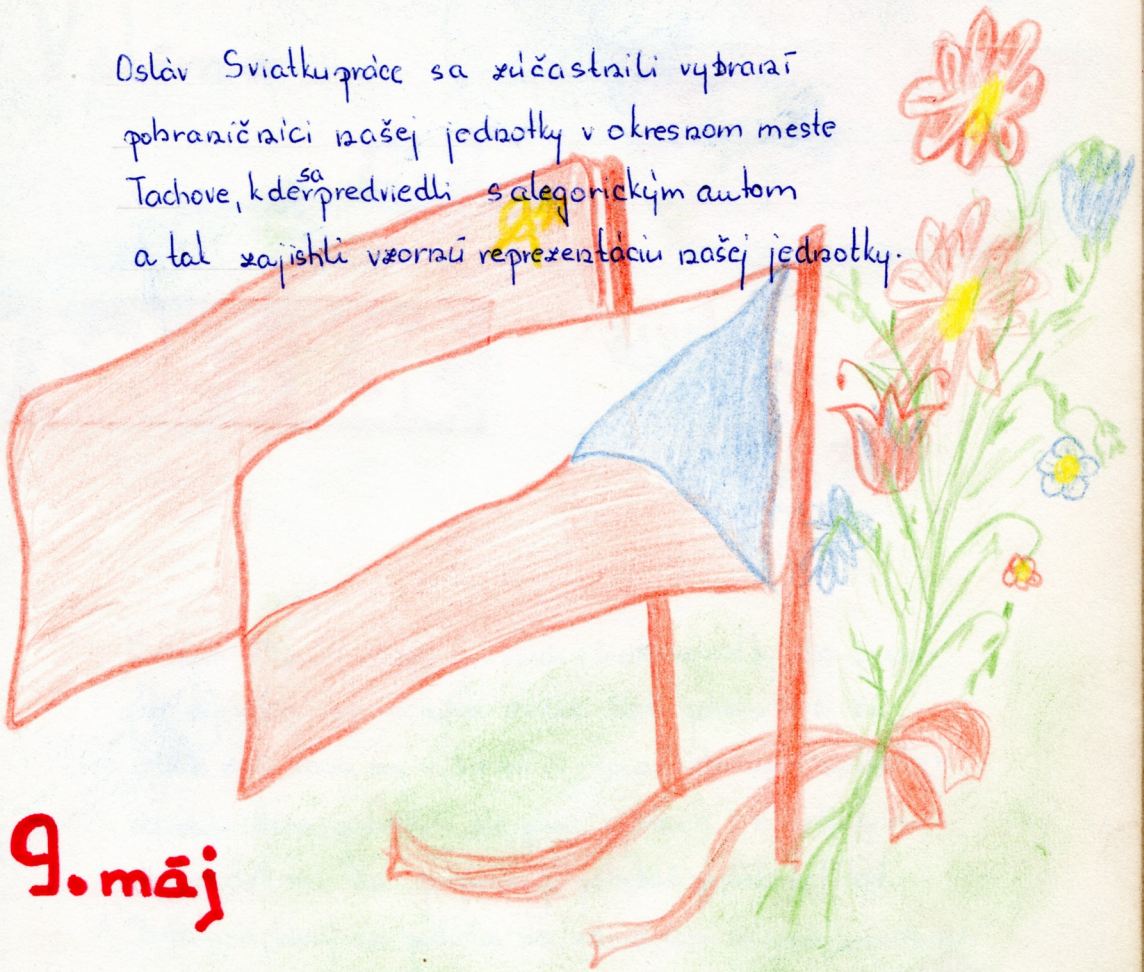 Osláv Sviatku práce sa zúčastnili vybraní
pohraničníci našej jednotky v okresnom meste
Tachove, kde sa predviedli s alegorickým autom
a tak zajistili vzornú reprezentáciu našej jednotky.
9. máj